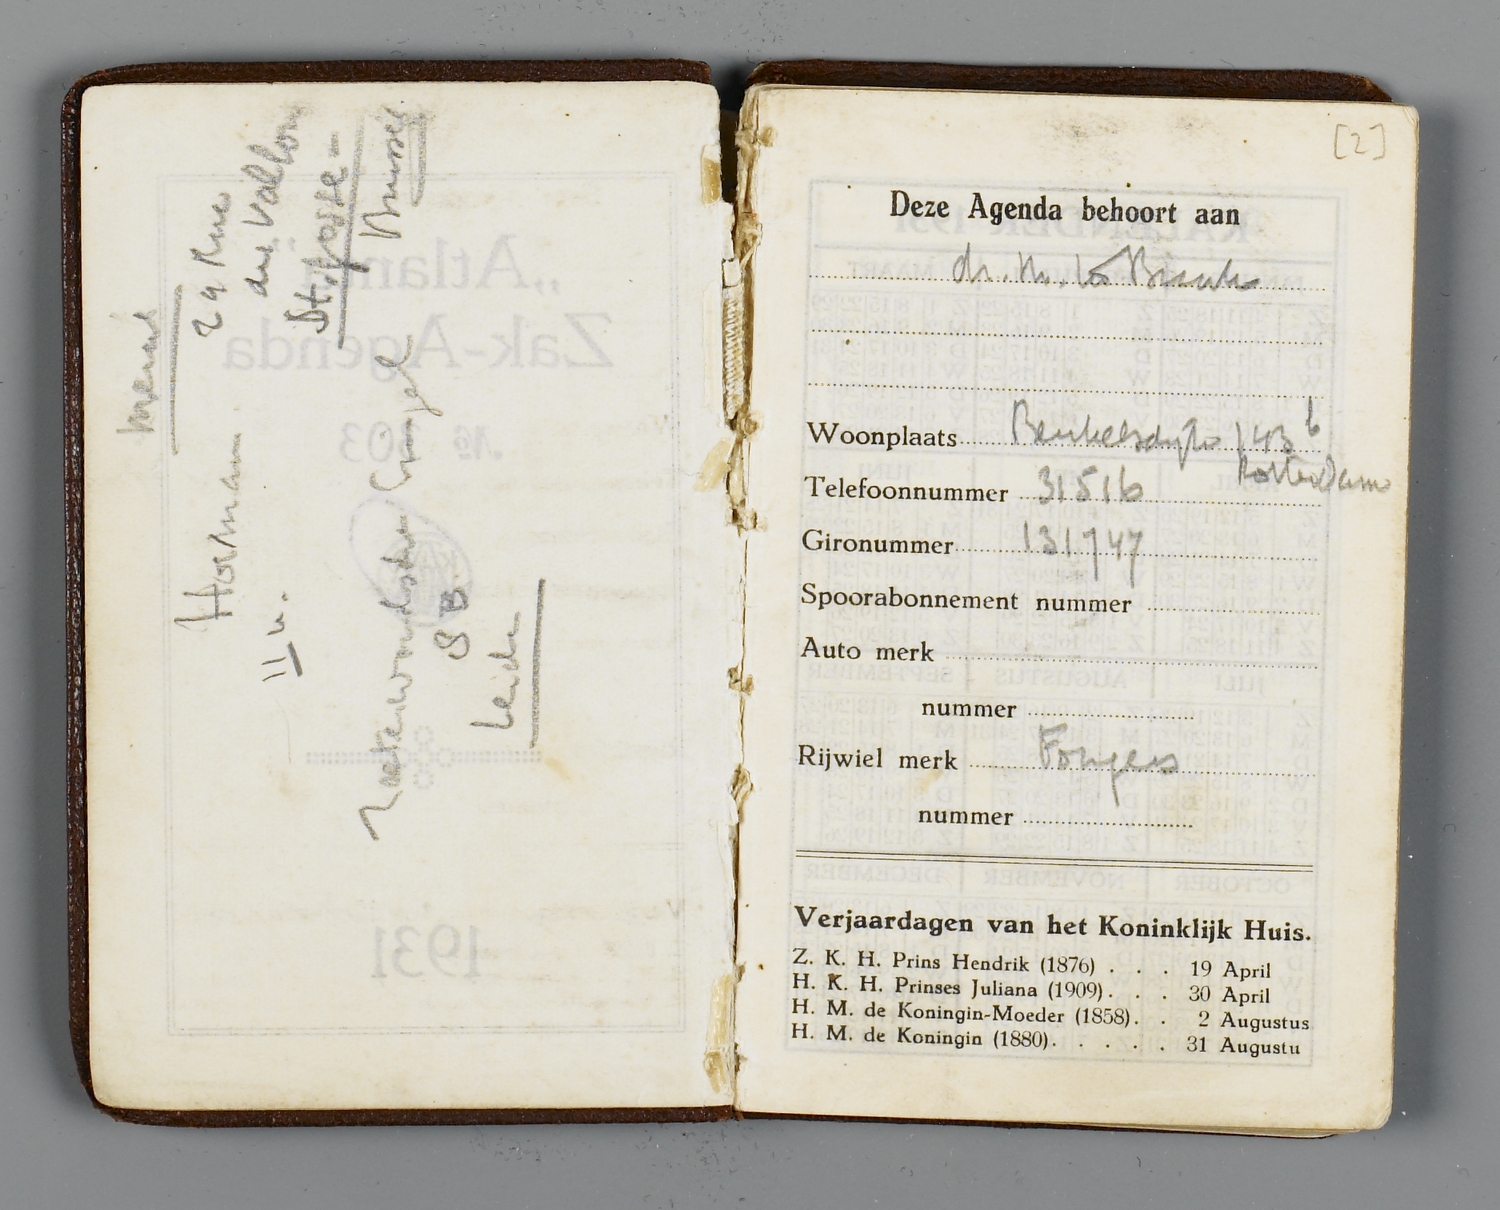 Horman
11 u.
29 Rue
du Vallon
St. Josse-
Singel
8 B.
Leiden
[2]
Deze Agenda behoort aan
dr. M.
Woonplaats Beukelsdijk 143 b
Rotterdam
Telefoonnummer 31516
Gironummer 131747
Spoorabonnement nummer
Auto merk
nummer
Rijwiel merk Fongers
nummer
Verjaardagen van het Koninklijk Huis.
Z. K. H. Prins Hendrik (1876) . . . 19 April
H. K. H. Prinses Juliana (1909) . . . 30 April
H. M. de Koningin-Moeder (1858) . . 2 Augustus
H. M. de Koningin (1880) . . . . . 31 Augustu